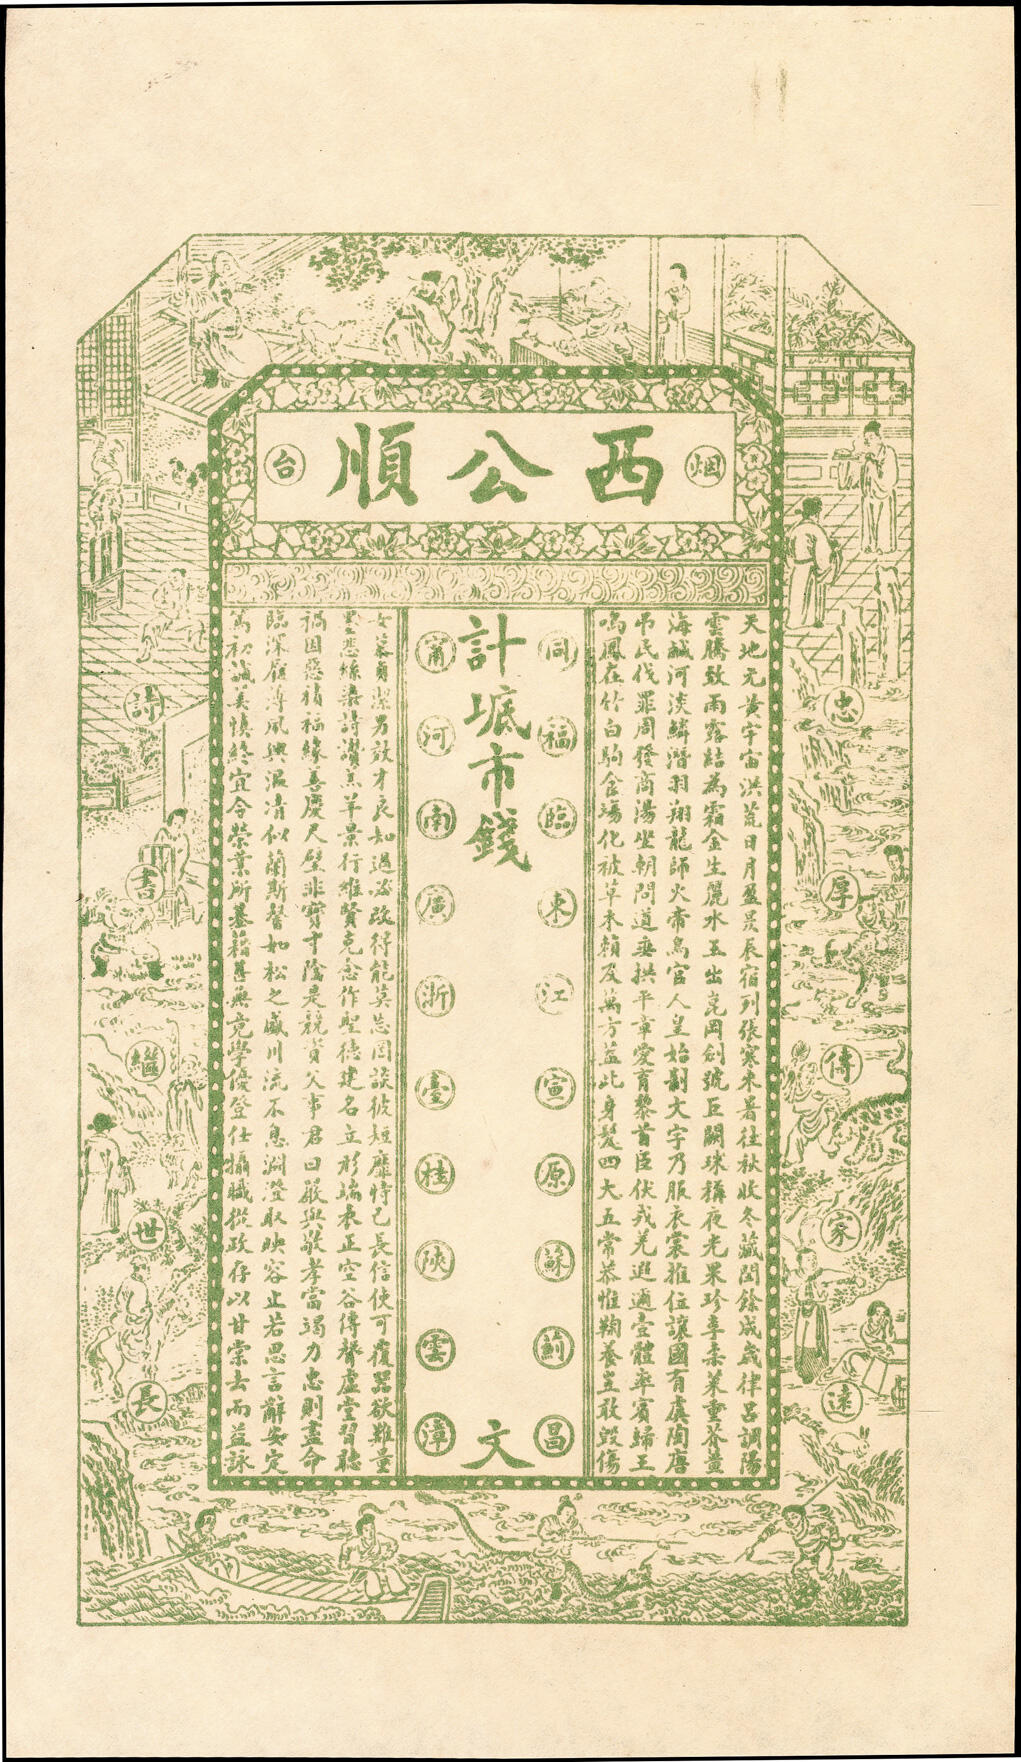 烟西公順台
忠厚傳家遠
天地元黃宇宙洪荒日月盈昃辰宿列張寒來暑往秋收冬藏閏餘成歲律呂調陽
雲騰致雨露結為霜金生麗水玉出崑岡劍號巨闕珠稱夜光果珍李柰菜重芥薑
海鹹河淡鱗潛羽翔龍師火帝鳥官人皇始制文字乃服衣裳推位讓國有虞陶唐
吊民伐罪周發商湯坐朝問道垂拱平章愛育黎首臣伏戎羌遐邇壹體率賓歸王
鳴鳳在竹白駒食場化被草木賴及萬方蓋此身髮四大五常恭惟鞠養豈敢毀傷
同福臨東江宣原蘇薊昌
計市錢文
甯河南廣浙臺桂陝雲漳
女慕貞潔男效才良知過必改得能莫忘罔談彼短靡恃己長信使可覆器欲難量
墨悲絲染詩讚羔羊景行維賢克念作聖德建名立形端表正空谷傳聲虛堂習聽
禍因惡積福緣善慶尺璧非寶寸陰是競資父事君曰嚴與敬孝當竭力忠則盡命
臨深履薄夙興溫清似蘭斯馨如松之盛川流不息淵澄取映容止若思言辭安定
篤初誠美慎終宜令榮業所基藉甚無竟學優登仕攝職從政存以甘棠去而益詠
詩書繼世長